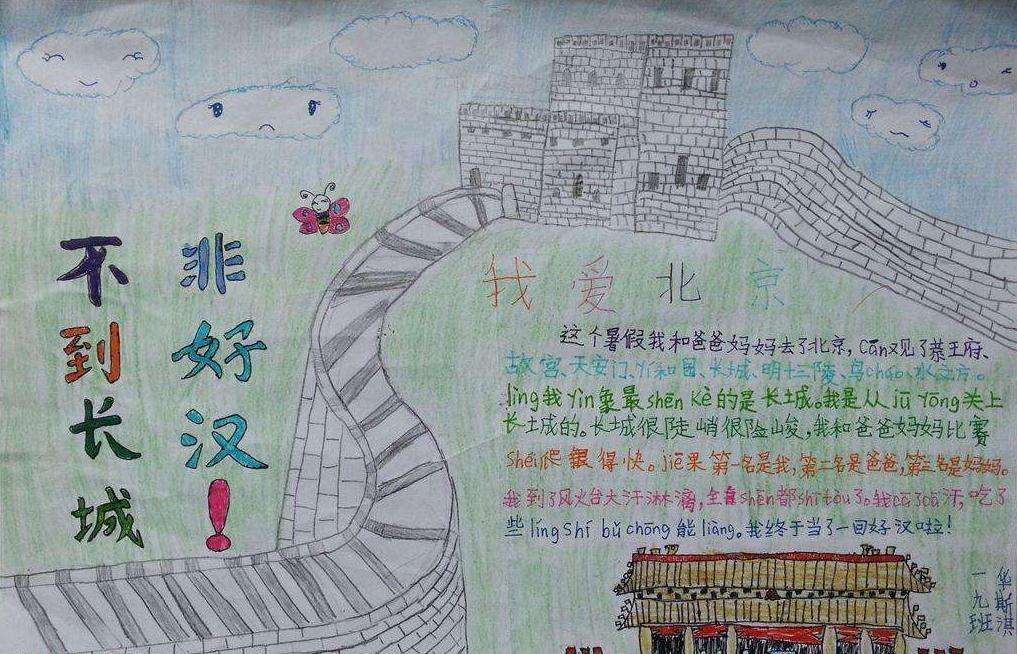 不到长城
非好汉！
我爱北京
这个暑假我和爸爸妈妈去了北京，cān观了恭王府、
故宫、天安门、yí和园、长城、明十三陵、鸟cháo、水立方。
lìng我yìn象最shēn kè的是长城。我是从jū yōng关上
长城的。长城很陡峭很险峻，我和爸爸妈妈比赛
shéi爬得快。jié果第一名是我，第二名是爸爸，第三名是妈妈。
我到了风火台大汗淋漓，全shēn都shī tòu了。我cā了cā汗，吃了
些líng shí bǔ chōng能liàng。我终于当了一回好汉啦！
一九班
华斯淇